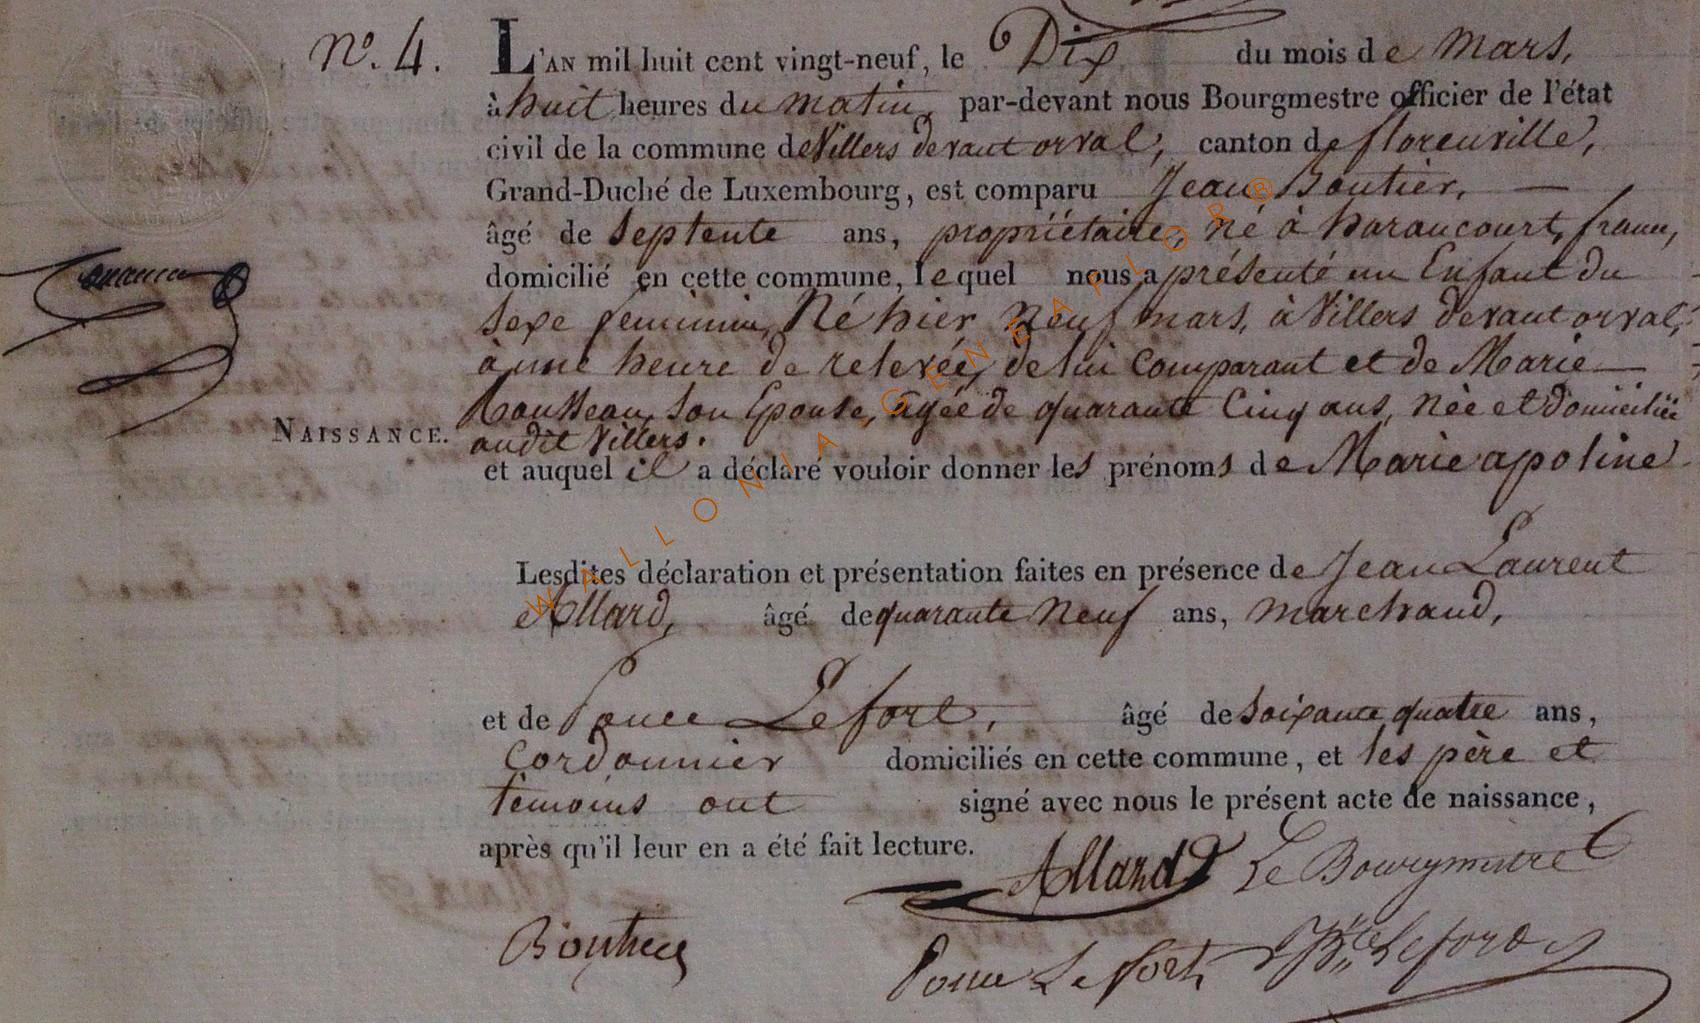 N.º 4. L'AN mil huit cent vingt-neuf, le Dix du mois de Mars,
à huit heures du matin, par-devant nous Bourgmestre officier de l'état
civil de la commune de Villers devant orval, canton de florenville,
Grand-Duché de Luxembourg, est comparu Jean Boutier,
âgé de Septente ans, propriïétaire, né à haraucourt, france,
domicilié en cette commune, lequel nous a présenté un Enfant du
Sexe feminin, Né hier Neuf mars, à Villers devant orval,
à une heure de relevée, de lui Comparant et de Marie
Rousseau, Son Epouse, agée de quarante Cinq ans, Née et domiciliée
audit Villers.
NAISSANCE.
et auquel il a déclaré vouloir donner les prénoms de Marie apoline
Lesdites déclaration et présentation faites en présence de Jean Laurent
Allard, âgé de quarante Neuf ans, marchand,
et de Ponce Lefort, âgé de Soixante quatre ans,
Cordonnier domiciliés en cette commune, et les père et
témoins ont signé avec nous le présent acte de naissance,
après qu'il leur en a été fait lecture.
Allard Le Bourgmestre
Boutier
Ponce Lefort Jb.te Lefort
WALLONIA GENEAPLORB